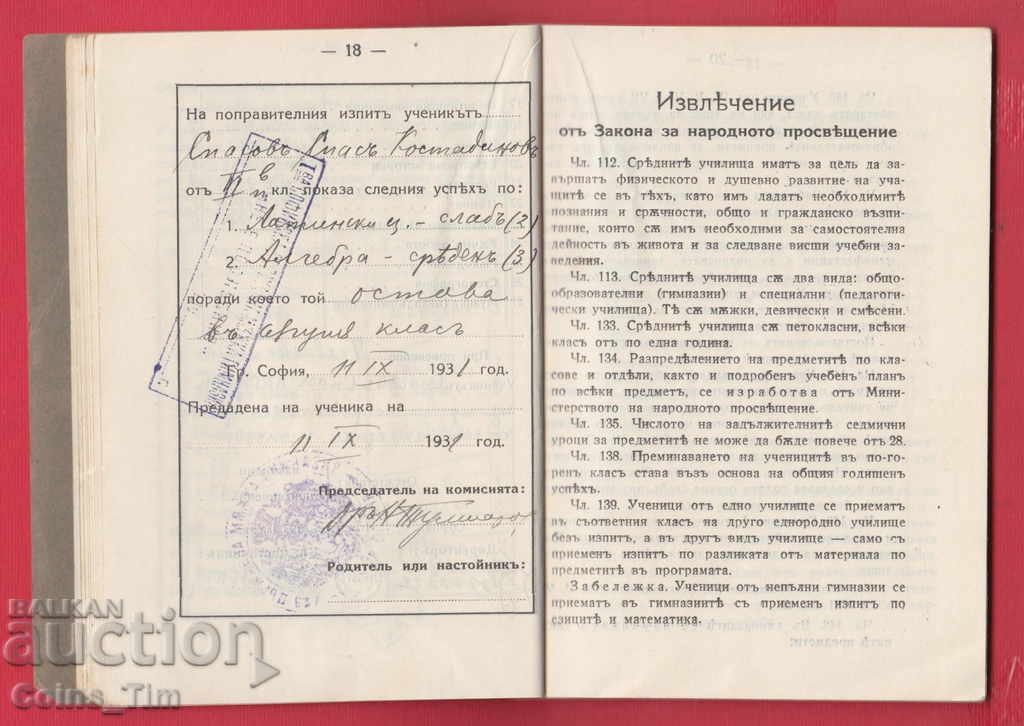 — 18 —
На поправителния изпитъ ученикътъ
Спасовъ Спасъ Костадиновъ
отъ II в кл. показа следния успѣхъ по:
1. Латински ез. – слабъ (2)
2. Алгебра – срѣденъ (3)
поради което той остава
въ същия класъ
гр. София, 11 IX 1931 год.
Предадена на ученика на
11 IX 1931 год.
Председатель на комисията:
Родитель или настойникъ:
Извлѣчение
отъ Закона за народното просвѣщение
Чл. 112. Срѣднитѣ училища иматъ за цель да за-
вършатъ физическото и душевно развитие на уча-
щитѣ се въ тѣхъ, като имъ дадатъ необходимитѣ
познания и срѫчности, общо и гражданско възпи-
тание, които сѫ имъ необходими за самостоятелна
дейность въ живота и за следване висши учебни за-
ведения.
Чл. 113. Срѣднитѣ училища сѫ два вида: общо-
образователни (гимназии) и специални (педагоги-
чески училища). Тѣ сѫ мѫжки, девически и смѣсени.
Чл. 133. Срѣднитѣ училища сѫ петокласни, всѣки
класъ отъ по една година.
Чл. 134. Разпредѣлението на предметитѣ по кла-
сове и отдѣли, както и подробенъ учебенъ планъ
по всѣки предметъ, се изработва отъ Мини-
стерството на народното просвѣщение.
Чл. 135. Числото на задължителнитѣ седмични
уроци за предметитѣ не може да бѫде повече отъ 28.
Чл. 138. Преминаването на ученицитѣ въ по-го-
ренъ класъ става възъ основа на общия годишенъ
успѣхъ.
Чл. 139. Ученици отъ едно училище се приематъ
въ съответния класъ на друго еднородно училище
безъ изпитъ, а въ другъ видъ училище — само съ
приеменъ изпитъ по разликата отъ материала по
предметитѣ въ програмата.
Забележка. Ученици отъ непълни гимназии се
приематъ въ гимназиитѣ съ приеменъ изпитъ по
езицитѣ и математика.
BALKAN
auction
Coins_Tim